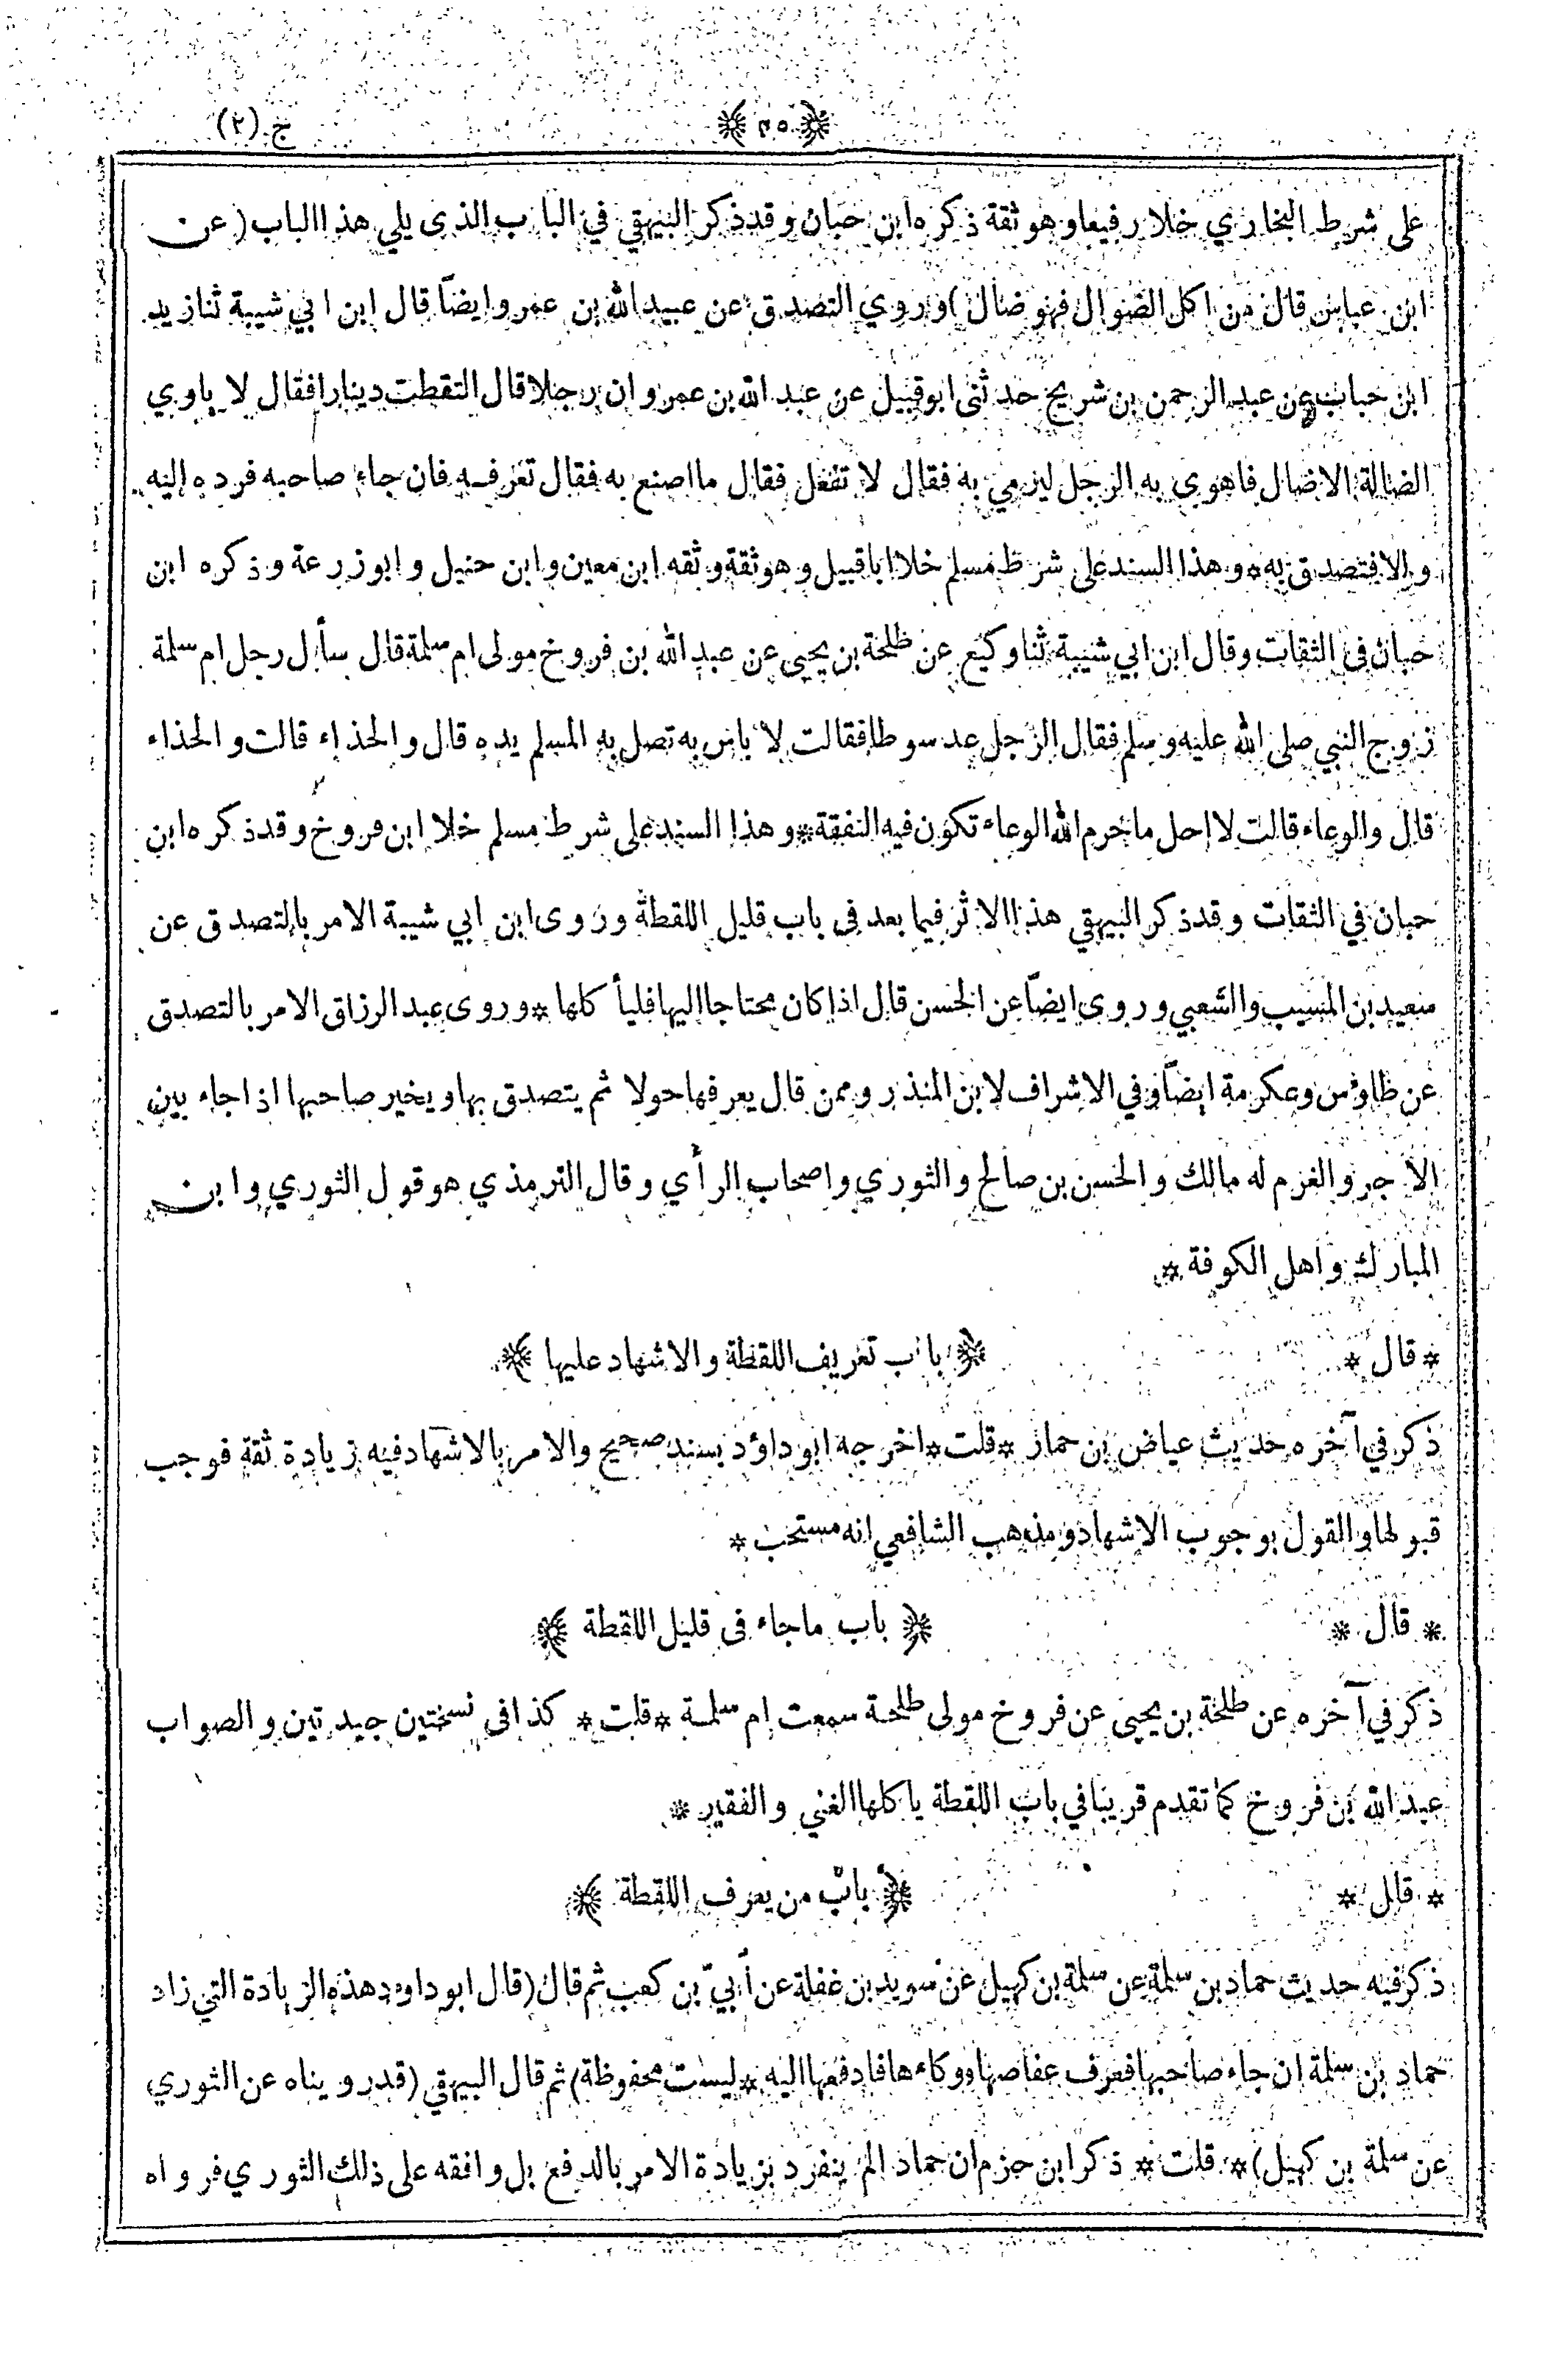 ج (٢)
على شرط البخاري خلا رفيعا وهو ثقة ذكره ابن حبان وقد ذكر البيهقي في الباب الذى يلي هذا الباب (عن
ابن عباس قال من اكل الضوال فهو ضال) وروي التصدق عن عبيد الله بن عمرو ايضاً قال ابن ابي شيبة ثنا زيد
ابن حباب عن عبد الرحمن بن شريح حدثنى ابو قبيل عن عبد الله بن عمرو ان رجلا قال التقطت دينارا فقال لا ياوي
الضالة الا ضال فاهوى به الرجل ليرمي به فقال لا تفعل فقال ما اصنع به فقال تعرفه فان جاء صاحبه فرده اليه
والا فتصدق به * وهذا السند على شرط مسلم خلا ابا قبيل وهو ثقة وثقه ابن معين وابن حنبل وابو زرعة وذكره ابن
حبان فى الثقات وقال ابن ابي شيبة ثنا وكيع عن طلحة بن يحيى عن عبد الله بن فروخ مولى ام سلمة قال سأل رجل ام سلمة
زوج النبي صلى الله عليه وسلم فقال الرجل عد سوطا فقالت لا باس به تصل به المسلم يده قال والحذاء قالت والحذاء
قال والوعاء قالت لا احل ما حرم الله الوعاء تكون فيه النفقة * وهذا السند على شرط مسلم خلا ابن فروخ وقد ذكره ابن
حبان في الثقات وقد ذكر البيهقي هذا الاثر فيما بعد فى باب قليل اللقطة وروى ابن ابي شيبة الامر بالتصدق عن
سعيد بن المسيب والشعبي وروى ايضاً عن الحسن قال اذا كان محتاجا اليها فليأكلها * وروى عبد الرزاق الامر بالتصدق
عن طاوس وعكرمة ايضاً وفي الاشراف لابن المنذر وممن قال يعرفها حولا ثم يتصدق بها ويخير صاحبها اذا جاء بين
الاجر والغرم له مالك والحسن بن صالح والثوري واصحاب الرأي وقال الترمذي هو قول الثوري وابن
المبارك واهل الكوفة *
* قال * ﴿ باب تعريف اللقطة والاشهاد عليها ﴾
ذكر في آخره حديث عياض بن حمار * قلت * اخرجه ابو داؤد بسند صحيح والامر بالاشهاد فيه زيادة ثقة فوجب
قبولها والقول بوجوب الاشهاد ومذهب الشافعي انه مستحب *
* قال * ﴿ باب ما جاء فى قليل اللقطة ﴾
ذكر في آخره عن طلحة بن يحيى عن فروخ مولى طلحة سمعت ام سلمة * قلت * كذا فى نسختين جيدتين والصواب
عبد الله بن فروخ كما تقدم قريبا في باب اللقطة ياكلها الغني والفقير *
* قال * ﴿ باب من يعرف اللقطة ﴾
ذكر فيه حديث حماد بن سلمة عن سلمة بن كهيل عن سويد بن غفلة عن أبيّ بن كعب ثم قال (قال ابو داود هذه الزيادة التي زاد
حماد بن سلمة ان جاء صاحبها فعرف عفاصها ووكاءها فادفعها اليه * ليست محفوظة) ثم قال البيهقي (قد رويناه عن الثوري
عن سلمة بن كهيل) * قلت * ذكر ابن حزم ان حمادا لم ينفرد بزيادة الامر بالدفع بل وافقه على ذلك الثوري فرواه